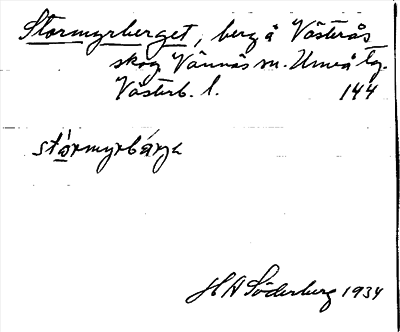 Stormyrberget, berg å Västerås
skog Vännäs sn. Umeå tg.
Västerb. l. 144
stórmyrbárjə
H A Söderberg 1934